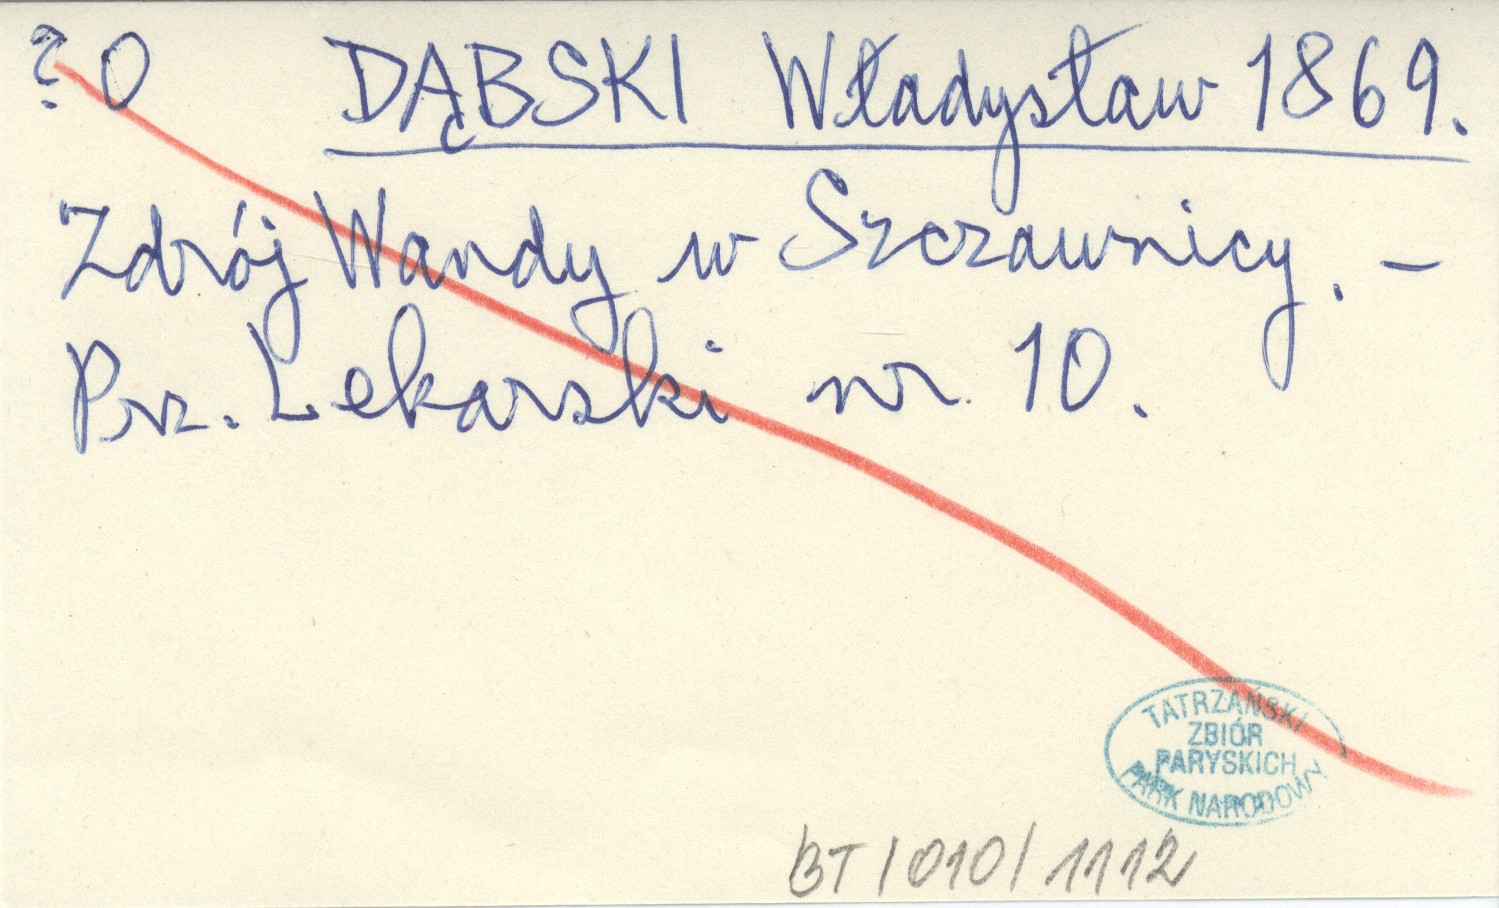 ? O DĄBSKI Władysław 1869.
Zdrój Wandy w Szczawnicy. -
Prz. Lekarski nr 10.
TATRZAŃSKI
ZBIÓR
PARYSKICH
PARK NARODOWY
BT/010/1112